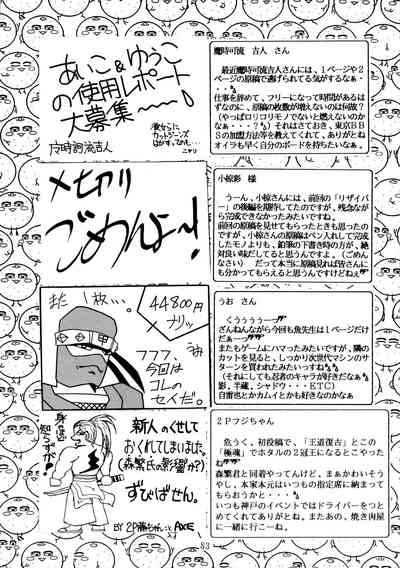 あいこ&ゆうこ
の使用レポート
大募集〜〜
メセアリ
ごめんよー!
また1枚…。
44800円
ナリッ
フフフ、
今回は
コレの
セイだ。
新人のくせして
おくれてしまいました。
(森繁氏の影響か?)
ずびばせん。
BY 2P藤ちゃんとAXE
魔時可流 吉人 さん
最近魔時可流吉人さんには、1ページや2
ページの原稿で逃げられてる気がするなぁ・
・・・
仕事を辞めて、フリーになって時間があるは
ずなのに、原稿の枚数が増えないのは何故?
(やっぱりコリコリモノでないと燃えないのか
なぁ・・・?)それはさておき、東京BB
Sの加盟方法等を教えてくれて、ありがとね
オイラも早く自分のボードを持ちたいなぁ。
小椋彩 様
うーん、小椋さんには、前回の「リザイバ
ー」の後編を期待してたのですが、残念なが
ら完成できなかったみたいですね。
前回の原稿を見せてもらったときも思ったの
ですが、小椋さんの原稿はペン入れして完成
したモノよりも、鉛筆の下書き時の方が、絶
対良い味だしてると思いますよ。(ごめんな
さい) だって本当に原稿見れば皆さんに
も分かってもらえると思うんですけどねぇ
うお さん
くうううう
ざんねんながら今回も魚先生は1ページだけ
だぁーっ
またもゲームにハマったみたいですが、隣の
カットを見ると、しっかり次世代マシンのサタ
ーンを買われたみたいっすね
(それにしても忍者のキャラが好きだなぁ
影、半蔵、シャドウ・・・ETC)
白雷也とかカムイとかも好きなのかなぁ
2Pフジちゃん
危うく、初投稿で、「王道復古」とこの
「極魂」でホタルの2冠王になるとこだった
ね
森繁君と同着やってんけど、まぁかわいそう
やし、本家本元はいつもの指定席に納まって
もらおうかと・・・
いつも神戸のイベントではドライバーをつと
めてくれてありがとね。またあの、焼き肉屋
に一緒に行こーね。
83